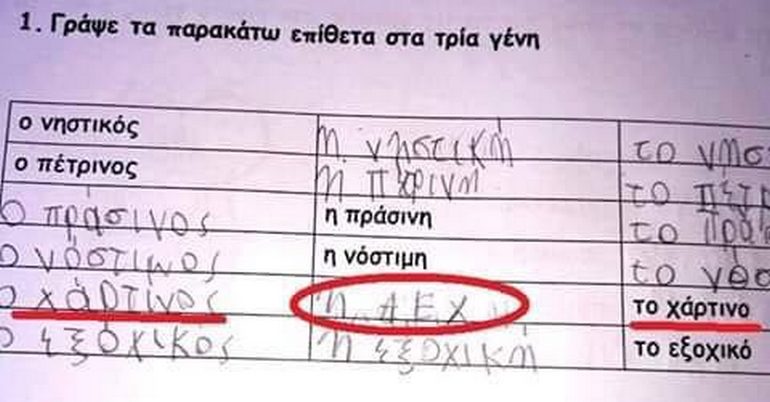 1. Γράψε τα παρακάτω επίθετα στα τρία γένη
ο νηστικός η νηστική το νησ
ο πέτρινος η πέτρινη το πετρ
ο πράσινος η πράσινη το πρά
ο νόστιμος η νόστιμη το νοσ
ο χάρτινος η ΔΕΧ το χάρτινο
ο εξοχικός η εξοχική το εξοχικό